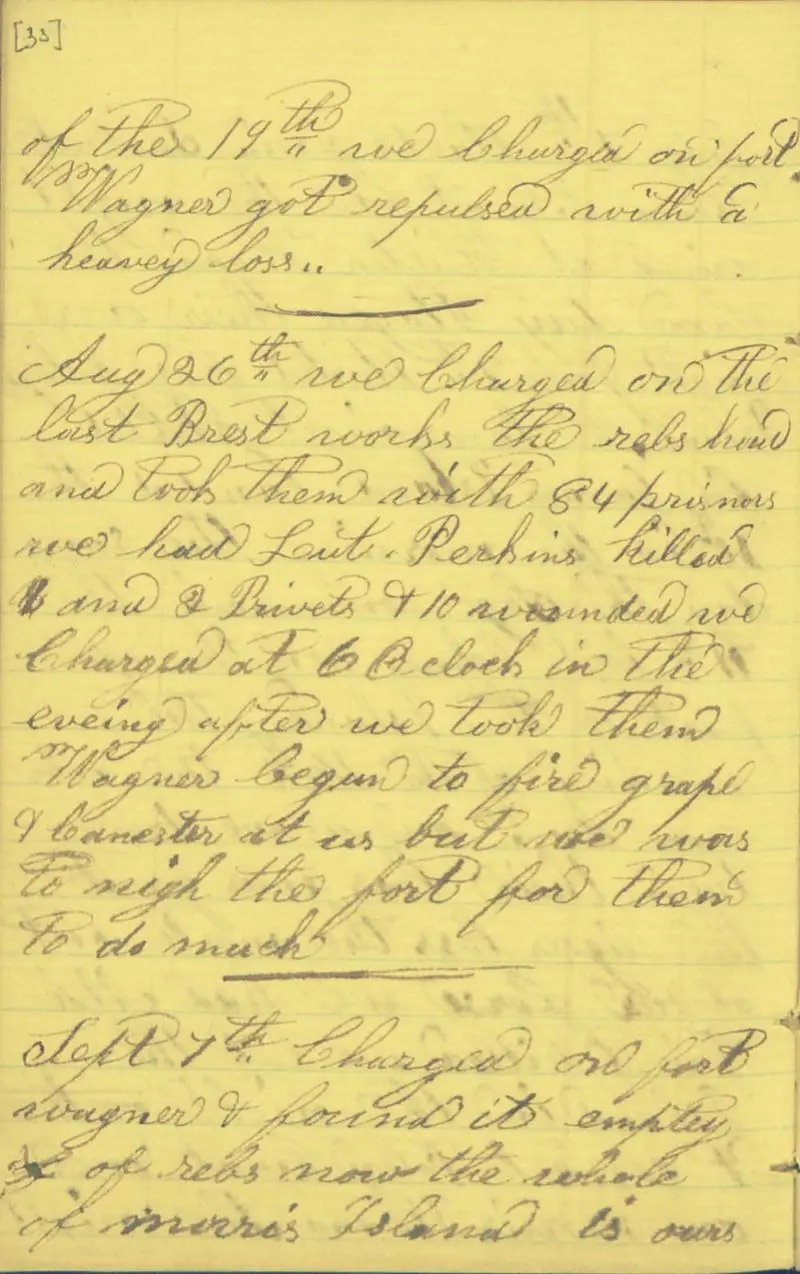 [33]
of the 19th we Charged on fort
Wagner got repulsed with a
heavey loss..
Aug 26th we Charged on the
last Brest works the rebs had
and took them with 84 prisnors
we had Leut. Perkins killed
and 2 Privets & 10 wounded we
Charged at 6 O clock in the
eveing after we took them
Wagner begun to fire grape
& Canester at us but we was
to nigh the fort for them
to do much
Sept 7th Charged on fort
wagner & found it emptey
of rebs now the whole
of morris Island is ours